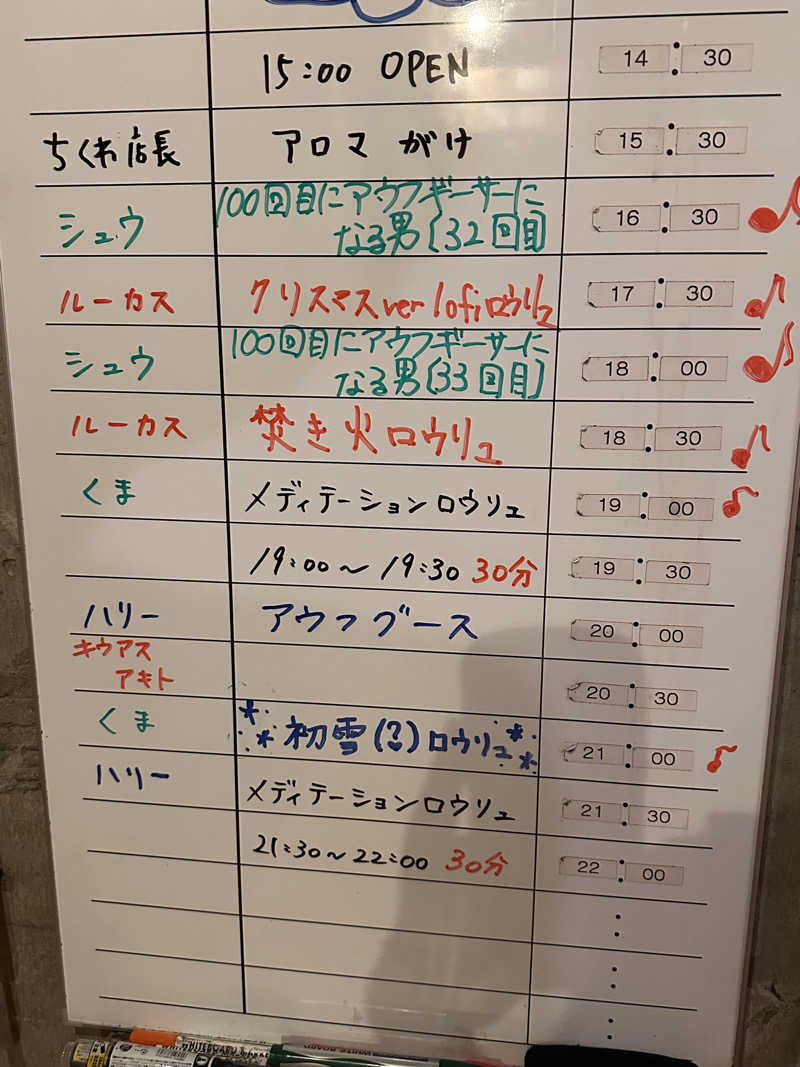 15:00 OPEN 14:30
ちくわ店長 アロマがけ 15:30
シュウ 100回目にアウフギーサーに
なる男(32回目) 16:30
ルーカス クリスマスver lofiロウリュ 17:30
シュウ 100回目にアウフギーサーに
なる男(33回目) 18:00
ルーカス 焚き火ロウリュ 18:30
くま メディテーションロウリュ 19:00
19:00〜19:30 30分 19:30
ハリー アウフグース 20:00
キウアス
アキト 20:30
くま 初雪(?)ロウリュ 21:00
ハリー メディテーションロウリュ 21:30
21:30〜22:00 30分 22:00
:
:
: